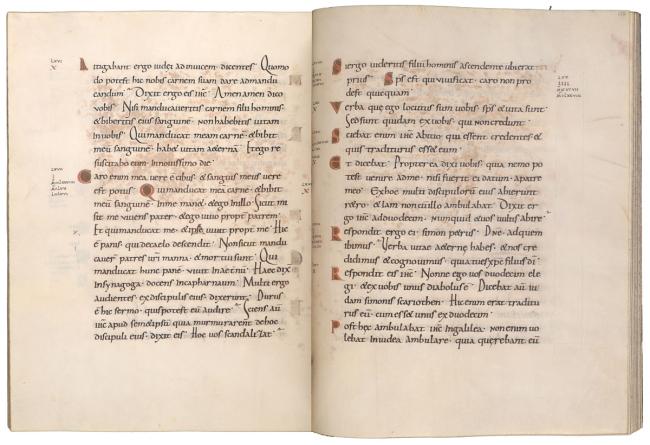 Litigabant ergo iudei adinuicem dicentes · Quomo
do potest hic nobis carnem suam dare admandu
candum · Dixit ergo eis ihc̄ · Amenamen dico
vobis · Nisi manducaueritis carnem filii hominis ·
&biberitis eius sanguinē · non habebitis uitam
inuobis · Quimanducat meam carnē · &bibit
meū sanguinē · hab& uitam aeternā · Etego re
suscitabo eum · innouissimo die ·
Caro enim mea uere ē cibus · & sanguis meus uere
est potus · Quimanducat meā carnē · &bibit
meū sanguinē · inme man& · &ego inillo · Sicut mi
sit me uiuens pater · &ego uiuo propt patrem ·
Et quimanducat me · &ipse uiu& propt me · Hic
ē panis quidecaelo descendit · Nonsicut mandu
cauer patres urī manna · &mortuisunt · Qui
manducat hunc panē · uiu& inaetnū · Haec dix
insynagoga · docens incapharnaum · Multi ergo
audientes · exdiscipulis eius · dixerunt · Durus
ē hic sermo · quispotest eū audire · Sciens aū
ihc̄ apud sem&ipsū quia murmurarent dehoc
discipuli eius · dixit eis · Hoc uos scandalizat ·
Si ergo uideritis filiū hominis ascendentē ubierat
prius · Sp̄s est qui uiuificat · caro non pro
dest quicquam ·
Verba que ego locutus sum uobis · sp̄s &uita sunt ·
Sedsunt quidam exuobis · qui noncredunt ·
Sciebat enim ihc̄ abitio · qui essent credentes · &
quis traditurus ess& eum ·
Et dicebat · Propterea dixi uobis · quia nemo po
test uenire adme · nisi fuerit ei datum · apatre
meo · Exhoc multi discipulorū eius abierunt
r&ro · &iam noncumillo ambulabant · Dixit er
go ihc̄ adduodecim · Numquid &uos uultis abire
Respondit ergo ei simon petrus · Dnē · adquem
ibimus · Verba uitae aeternę habes · &nos cre
didimus &cognouimus · quia tues xpc̄ filius dī
Respondit eis ihc̄ · Nonne ego uos duodecim ele
gi · &exuobis unus diabolusē · Dicebat aū iu
dam simonis scariothen · Hic enim erat traditu
rus eū · cumess& unus exduodecim ·
Post hęc ambulabat ihc̄ ingalilea · Non enim uo
lebat iniudea ambulare · quia querebant eū